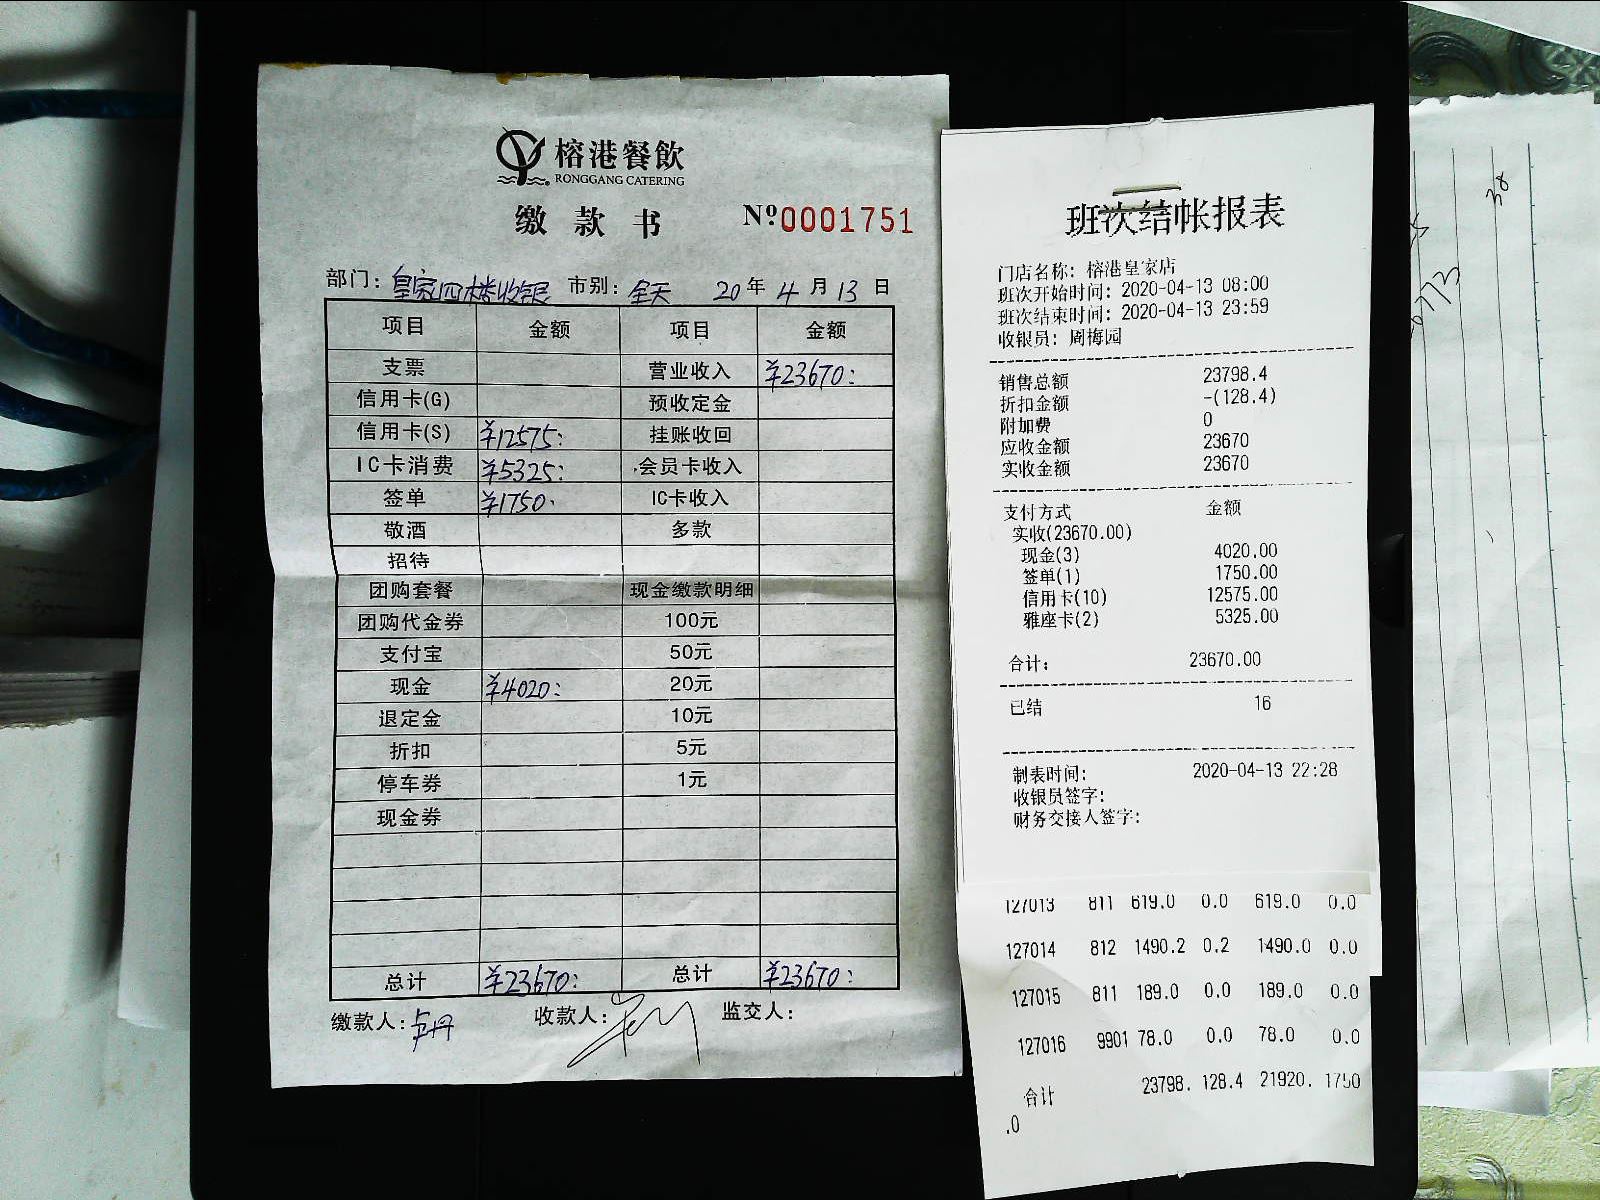 榕港餐飲
RONGGANG CATERING
缴款书 Nº0001751
部门：皇家四楼收银 市别：全天 20年4月13日
项目 金额 项目 金额
支票 营业收入 ¥23670:
信用卡(G) 预收定金
信用卡(S) ¥12575: 挂账收回
IC卡消费 ¥5325: 会员卡收入
签单 ¥1750. IC卡收入
敬酒 多款
招待
团购套餐 现金缴款明细
团购代金券 100元
支付宝 50元
现金 ¥4020: 20元
退定金 10元
折扣 5元
停车券 1元
现金券
总计 ¥23670: 总计 ¥23670:
缴款人：卢丹 收款人： 监交人：
班次结帐报表
门店名称: 榕港皇家店
班次开始时间: 2020-04-13 08:00
班次结束时间: 2020-04-13 23:59
收银员: 周梅园
销售总额 23798.4
折扣金额 -(128.4)
附加费 0
应收金额 23670
实收金额 23670
支付方式 金额
实收(23670.00)
现金(3) 4020.00
签单(1) 1750.00
信用卡(10) 12575.00
雅座卡(2) 5325.00
合计: 23670.00
已结 16
制表时间: 2020-04-13 22:28
收银员签字:
财务交接人签字:
127013 811 619.0 0.0 619.0 0.0
127014 812 1490.2 0.2 1490.0 0.0
127015 811 189.0 0.0 189.0 0.0
127016 9901 78.0 0.0 78.0 0.0
合计 23798. 128.4 21920. 1750
.0
38